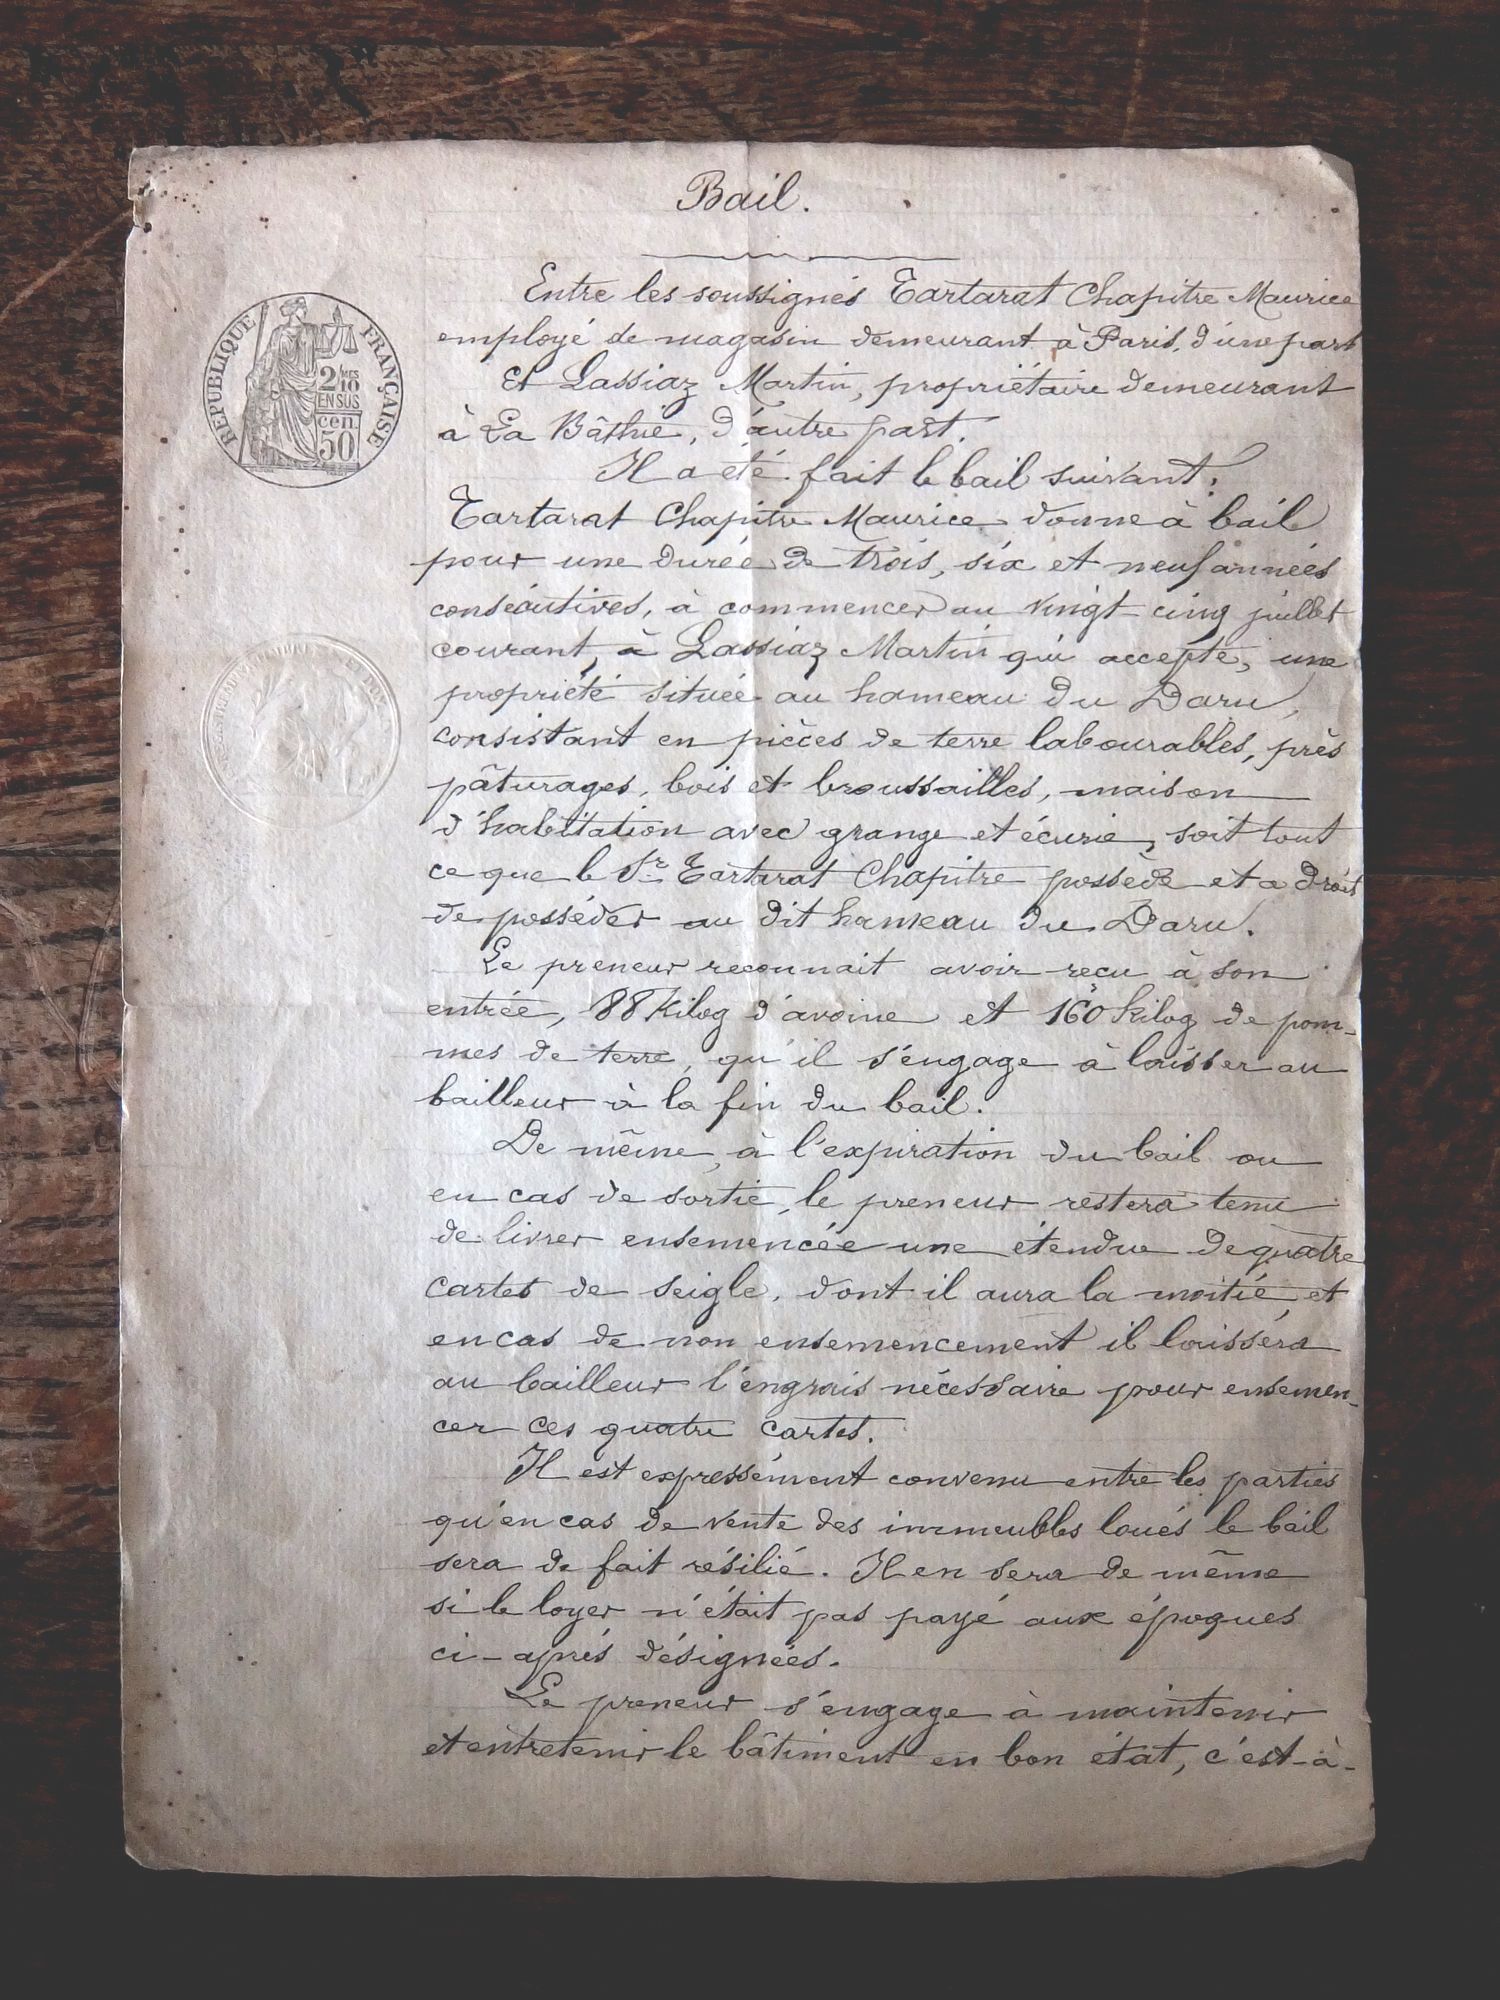 Bail.
Entre les soussignés Tartarat Chapitre Maurice
employé de magasin demeurant à Paris, d'une part
Et Lassiaz Martin, propriétaire demeurant
à La Bâthie, d'autre part.
Il a été fait le bail suivant:
Tartarat Chapitre Maurice donne à bail
pour une durée de trois, six et neuf années
consécutives, à commencer au vingt-cinq juillet
courant, à Lassiaz Martin qui accepte, une
propriété située au hameau du Daru,
consistant en pièces de terre labourables, près
pâturages, bois et broussailles, maison
d'habitation avec grange et écurie, soit tout
ce que le Sr Tartarat Chapitre possède et a droit
de posséder au dit hameau du Daru.
Le preneur reconnait avoir reçu à son
entrée, 88 Kilog d'avoine et 160 kilog de pom-
mes de terre, qu'il s'engage à laisser au
bailleur à la fin du bail.
De même, à l'expiration du bail ou
en cas de sortie, le preneur restera tenu
de livrer ensemencée une étendue de quatre
cartes de seigle, dont il aura la moitié, et
en cas de non ensemencement il laissera
au bailleur l'engrais nécessaire pour ensemen-
cer ces quatre cartes.
Il est expressément convenu entre les parties
qu'en cas de vente des immeubles loués le bail
sera de fait résilié. Il en sera de même
si le loyer n'était pas payé aux époques
ci-après désignées.
Le preneur s'engage à maintenir
et entretenir le bâtiment en bon état, c'est-à-
RÉPUBLIQUE FRANÇAISE
2/10MES
EN SUS
cen.
50